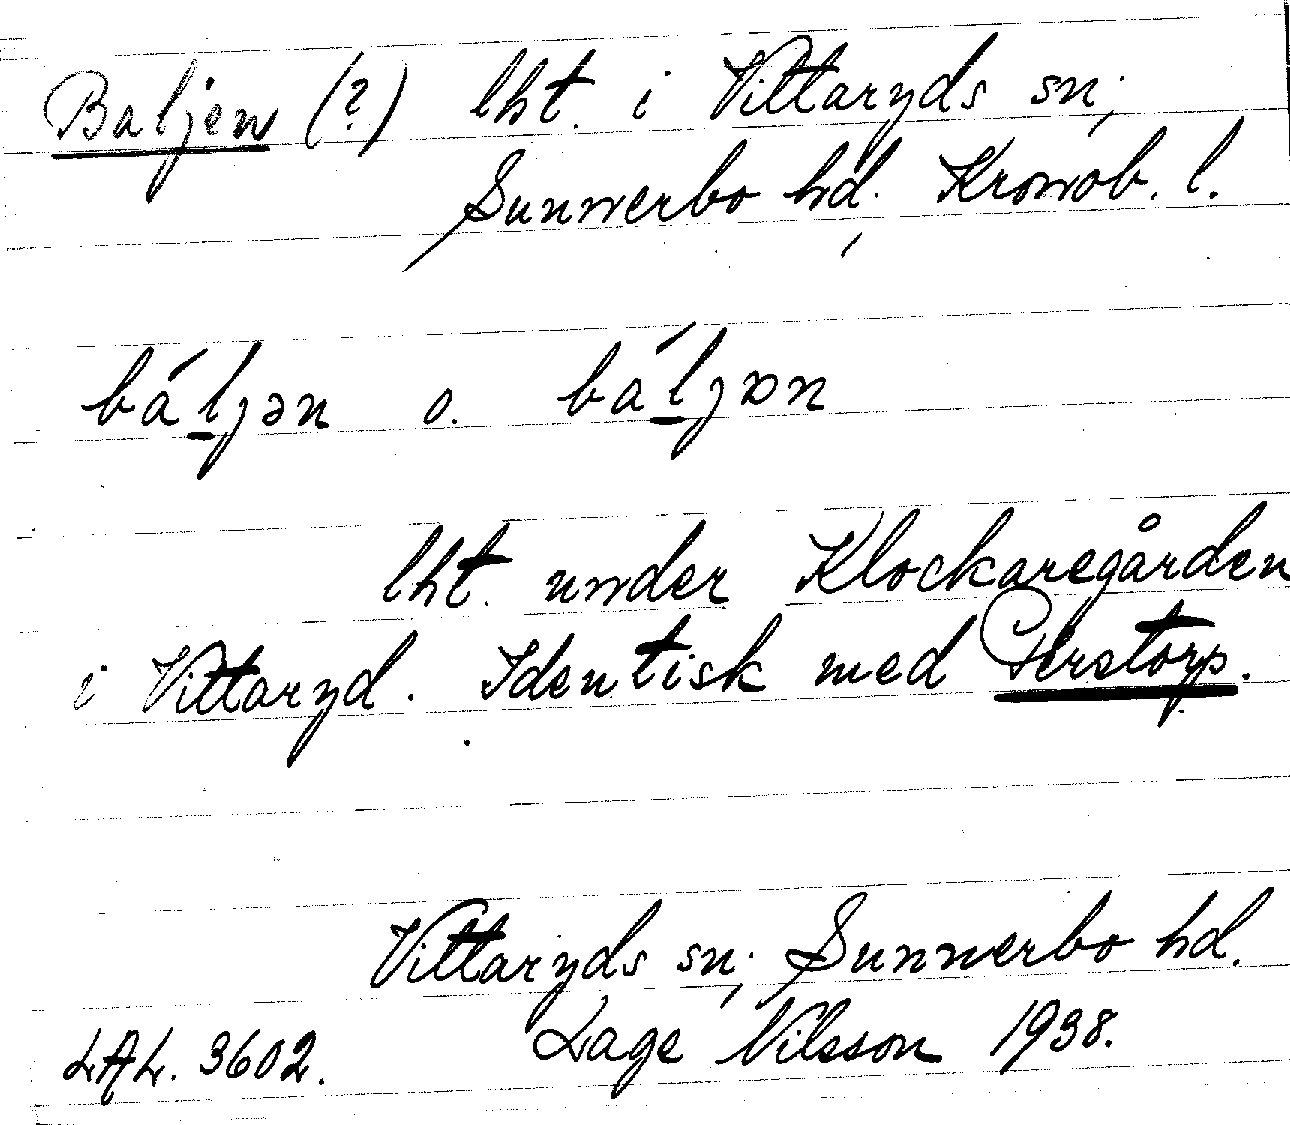 Baljen (?) lht. i Vittaryds sn;
Sunnerbo hd. Kronob. l.
báljən o. báljɒn
lht. under Klockaregården
i Vittaryd. Identisk med Perstorp.
Vittaryds sn; Sunnerbo hd.
LAL. 3602. Lage Nilsson 1938.